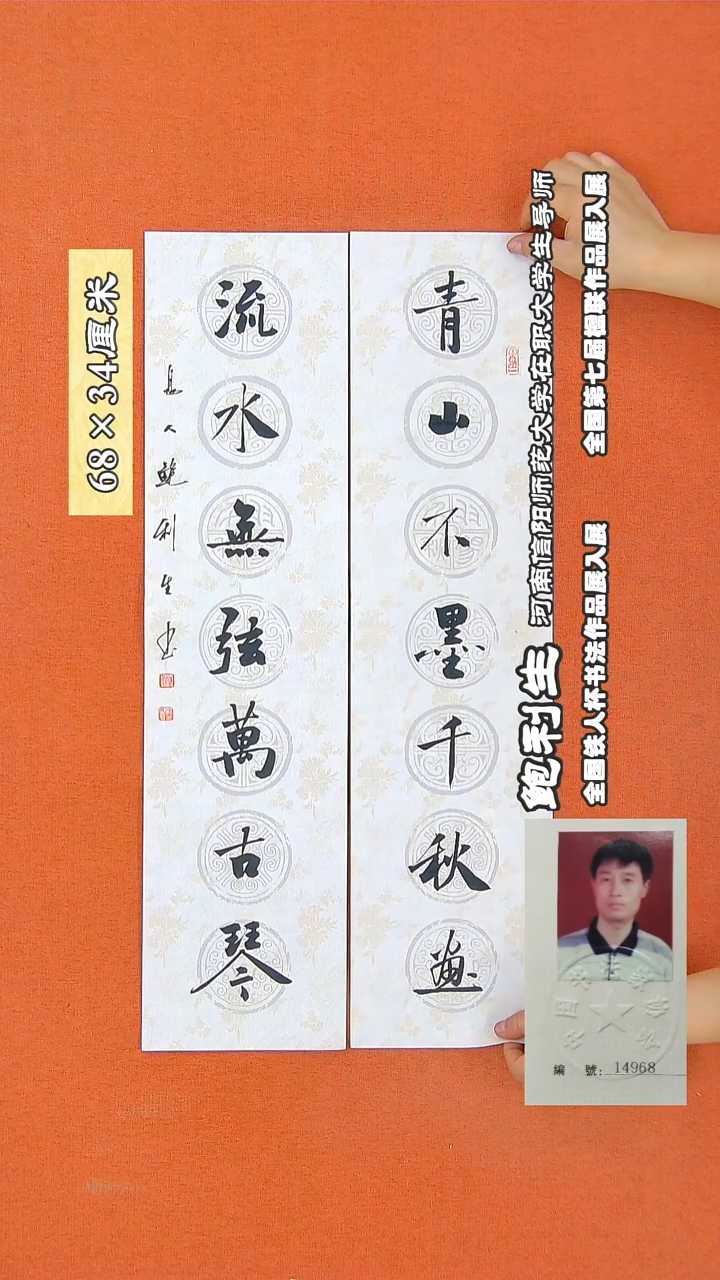 青山不墨千秋画
流水無弦萬古琴
息人鲍利生书
68×34厘米
鲍利生
河南信阳师范大学在职大学生导师
全国第七届楹联作品展入展
全国铁人杯书法作品展入展
編 號: 14968